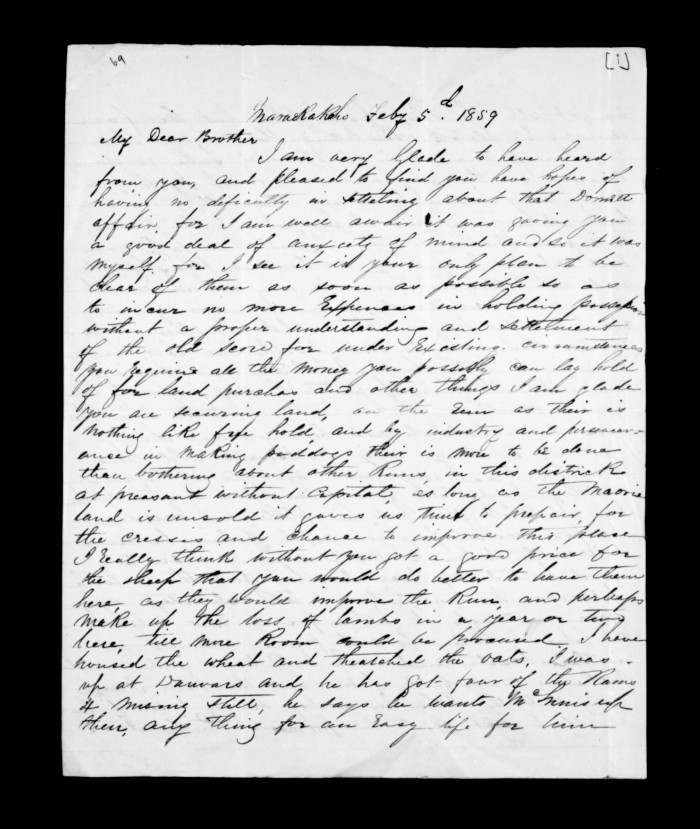 69
[1]
Maraekakaho Feby 5d. 1859
My Dear Brother
I am very Glade to have heard
from you, and pleased to find you have hopes of
having no deficulty in setteling about that Domett
affair, for I am well awair it was gaving you
a good deal of anxiety of mind and so it was
myself, for I see it is your only plan to be
clear of them as soon as possible so as
to incur no more Expences in holding possession
without a proper understanding and settelment
of the old score for under Existing circumstances
you Require all the money you possibly can lay hold
of for land purchas and other things I am glade
you are securing land, on the Run as their is
nothing like free hold, and by industry and persever-
ance in making paddogs their is more to be done
than bothering about other Runs, in this districk
at preasant without Capital, as long as the Maorie
land is unsold it gaves us time to prepair for
the cresses and chance to improve this place
I really think without you got a good price for
the sheep that you would do better to have them
here, as they would improve the Run, and perhaps
make up the loss of lambs in a year or two
here, till more Room could be procured. I have
housed the wheat and theatched the oats, I was
up at and he has got four of the Rams
4 missing still, he says he wants McInnis up
then, any thing for an Easy life for him